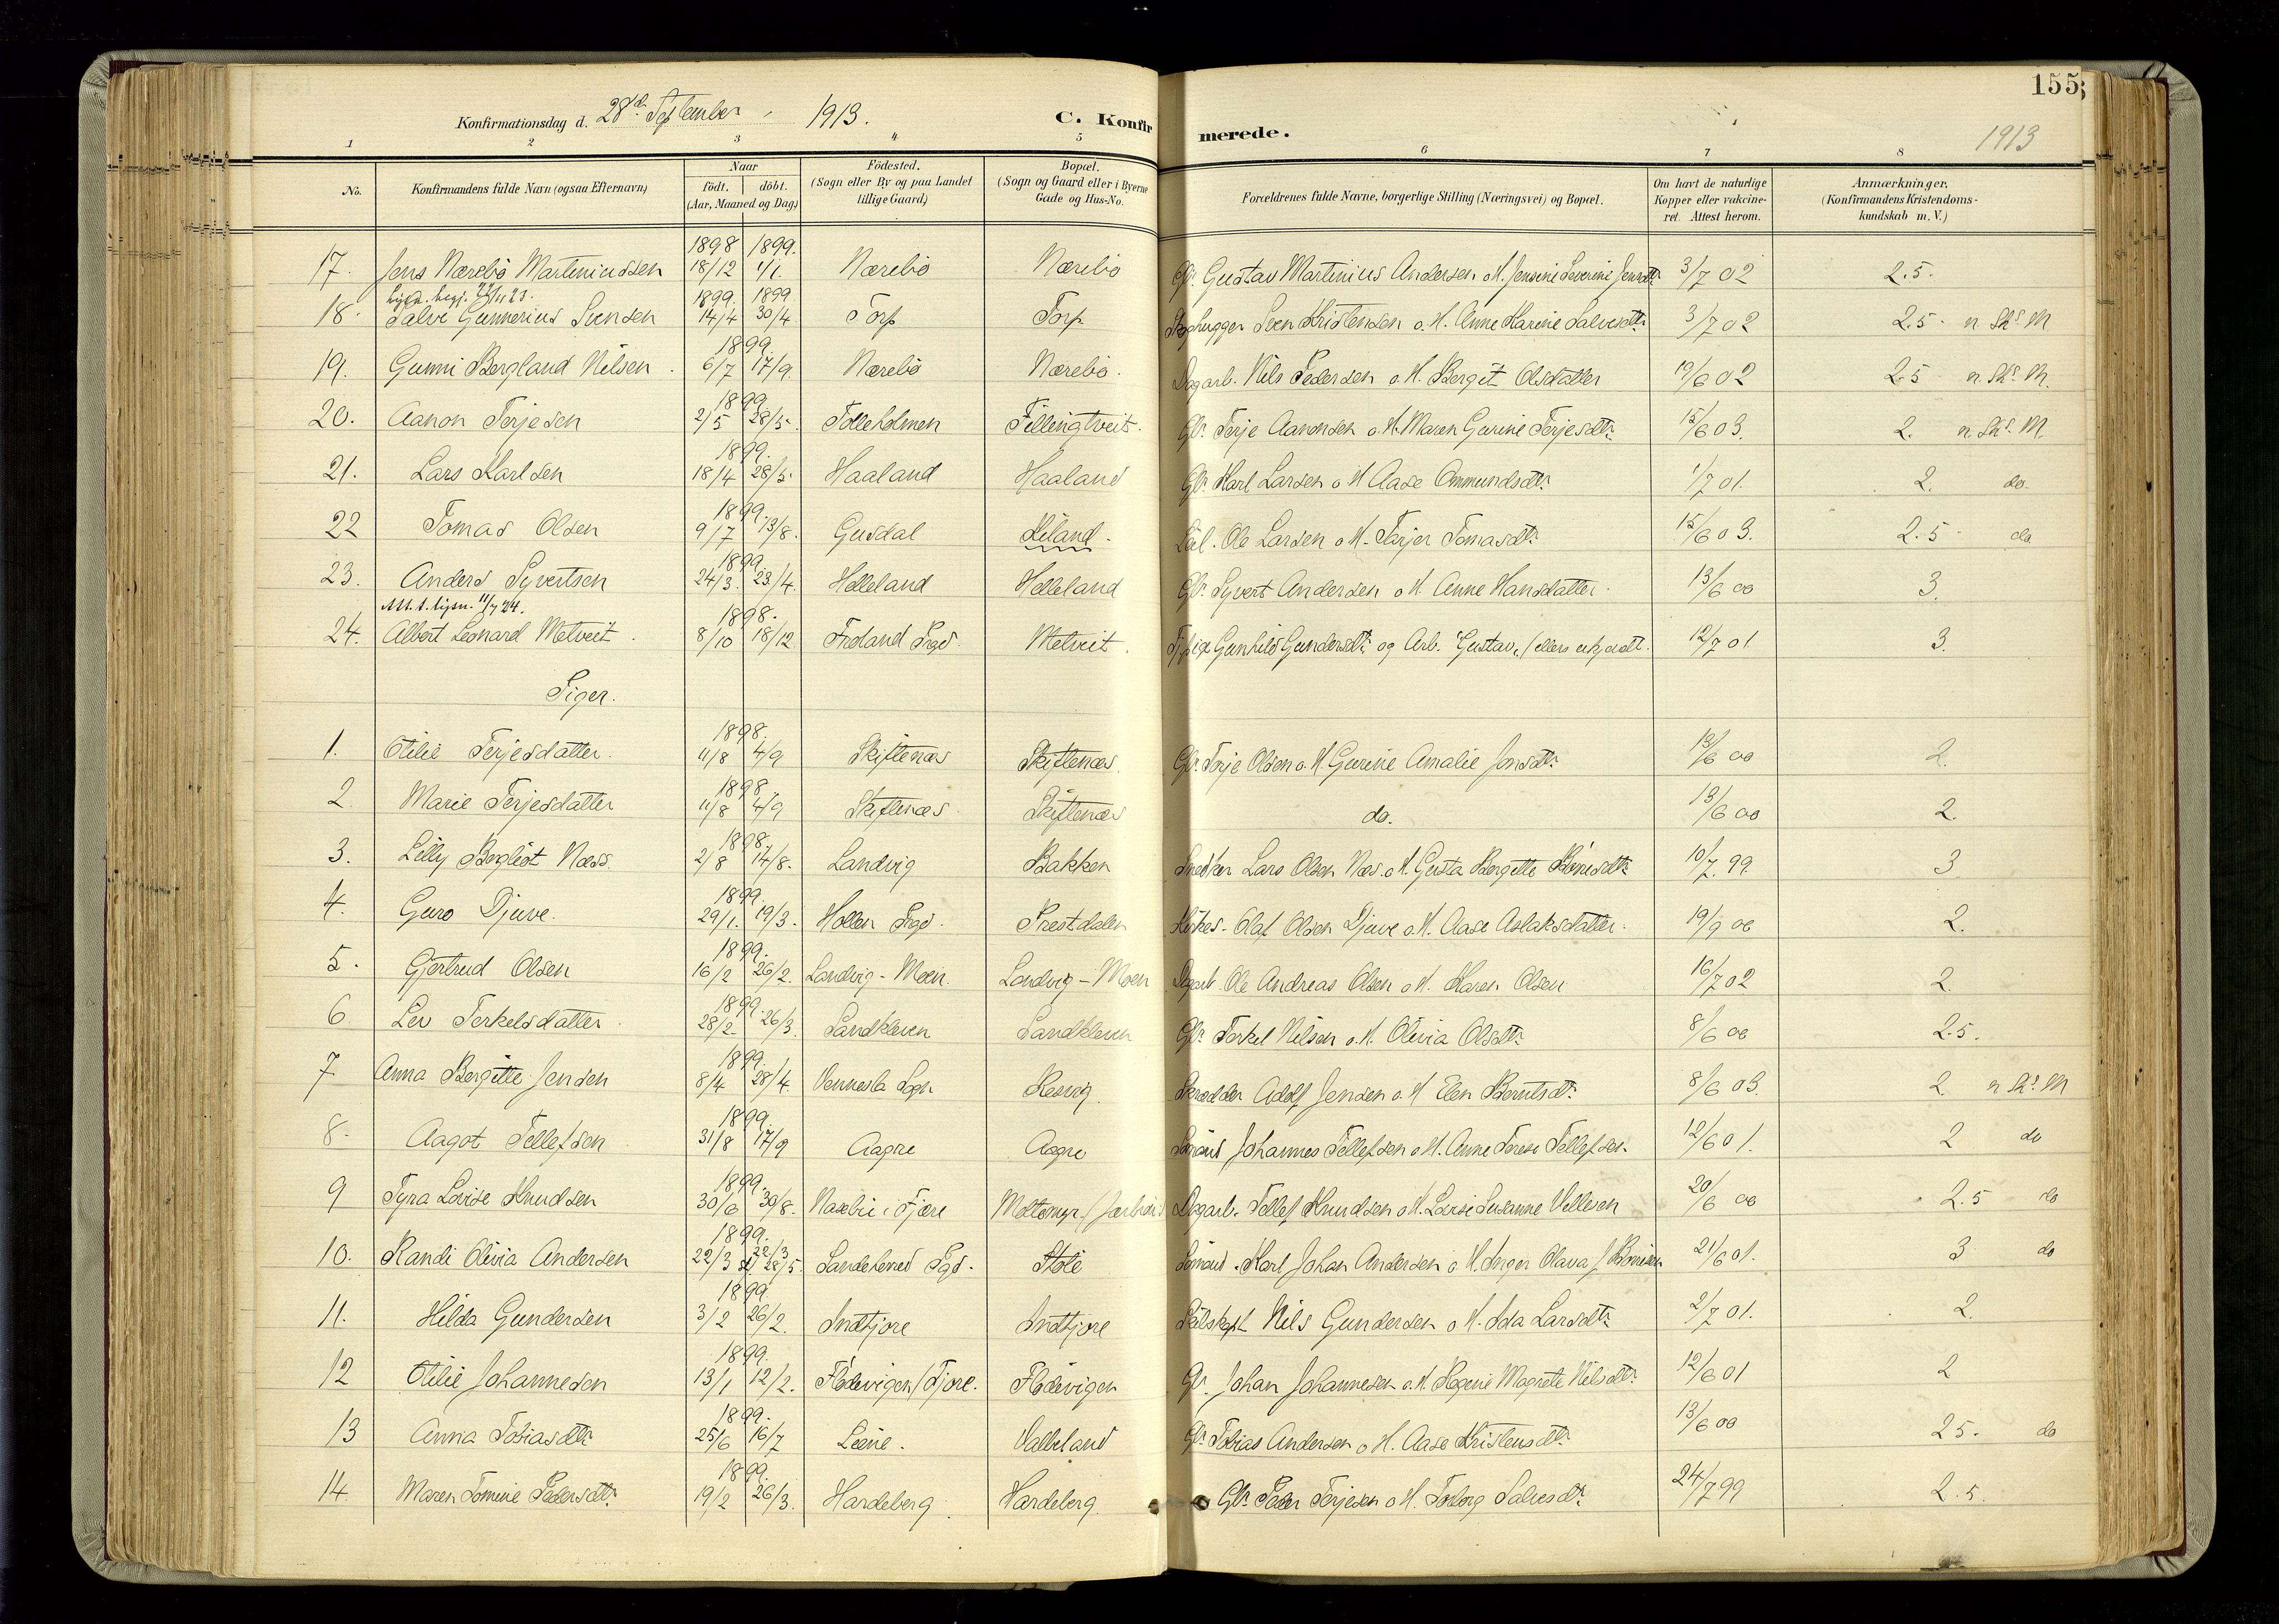 155
Konfirmationsdag d. 28de September 1913. C. Konfirmerede. 1913
1 2 3 4 5 6 7 8
No. Konfirmandens fulde Navn (ogsaa Efternavn) Naar født. døbt. (Aar, Maaned og Dag) Fødested. (Sogn eller By og paa Landet tillige Gaard) Bopæl. (Sogn og Gaard eller i Byerne Gade og Hus-No. Forældrenes fulde Navne, borgerlige Stilling (Næringsvei) og Bopæl. Om havt de naturlige Kopper eller vakcineret. Attest herom. Anmærkninger. (Konfirmandens Kristendomskundskab m. V.)
17. Jens Nærebø Martiniussen 1898 18/12 1899. 1/1. Nærebø Nærebø Gbr. Gustav Martinius Andersen o. H. Jensine Severine Jensdtr 3/7 02 2.5.
18. Salve Gunnerius Svensen 1899. 14/4 1899 30/4 Torp Torp Skoghugger Sven Kristensen o. H. Anne Karine Salvesdtr 3/7 02 2.5 n. Sk. M
19. Gunni Bergland Nilsen. 1899. 6/7 17/9. Nærebø Nærebø. Dagarb. Nils Pedersen o. H. Bergit Olsdatter 19/6 02 2.5 n. Sk. M.
20. Aanon Terjesen 1899. 2/5 28/5. Tolleholmen Fillingtveit. Gbr. Terje Aanonsen o. H. Maren Gurine Terjesdtr. 15/6 03. 2. n. Sk. M.
21. Lars Karlsen 1899. 18/4 28/5. Haaland Haaland Gbr. Karl Larsen o. H Aase Ommundsdtr. 1/7 01. 2. do.
22 Tomas Olsen 1899. 9/7 13/8. Gusdal Kiland. Ole Larsen o. H. Tarjer Tomasdtr. 15/6 03. 2.5 do
23. Anders Syvertsen 1899. 24/3. 23/4. Helleland Helleland Gbr. Syvert Andersen o. H. Anne Hansdatter. 13/6 00 3.
24. Albert Leonard Metveit. 1898. 8/10 18/12 Froland Metveit. Pige Gunhild Gundersdtr. og Arb. Gustav, 12/7 01 3.
Piger.
1. Otilie Terjesdatter. 1898. 11/8 4/9 Skiftenæs Skiftenæs. Gbr. Terje Olsen o. H. Gurine Amalie Jonsdtr. 13/6 00 2.
2. Marie Terjesdatter 1898. 11/8 4/9 Skiftenæs. Skiftenæs do. 13/6 00 2.
3. Lilly Bergliot Næss. 1898. 2/8 14/8. Landvig Bakken Snedker Lars Olsen Næs. o. H. Gusta Bergitte 10/7. 99. 3
4. Guro Djuve. 1899. 29/1. 19/3. Hollen Prestdalen Kirkes. Olaf Olsen Djuve o. H. Aase Aslaksdatter. 19/9 00 2.
5. Gjertrud Olsen 1899. 16/2 26/2. Landvig - Moen. Landvig - Moen Dagarb. Ole Andreas Olsen o. H. Karen Olsen 16/7 02 2.
6 Liv Terkelsdatter. 1899. 28/2. 26/3. Sandkleven Sandkleven Gbr. Terkel Nilsen o. H. Olivia Olsdtr. 8/6 00 2.5.
7 Anna Bergitte Jensen 1899. 8/4 28/4. Vennesla Sogn Resvig. Skrædder Adolf Jensen o. H Elen Berntsdtr. 8/6 03. 2 n. Sk. M
8. Aagot Tellefsen 1899. 31/8 17/9 Aagre Aagre Sømand Johannes Tellefsen o. H. Anne Terese Tellefsen. 12/6 01. 2 do
9 Tyra Lovise Knudsen 1899. 30/6 30/8. Fjære Dagarb. Tellef Knudsen o. H. Lovise Susanne Vellesen 20/6 00 2.5 do
10. Randi Olivia Andersen 1899. 22/3 22/3 28/5. Sandeherred Støle Sømand. Karl Johan Andersen o. H. Inger Olava 21/6 01. 3 do
11. Hilda Gundersen 1899. 3/2 26/2. Indtjore Indtjore Nils Gundersen o. H. Ida Larsdtr. 2/7 01. 2.
12 Otilie Johannesen 1899. 13/1. 12/2. Flødevigen / Fjære. Flødevigen Gbr. Johan Johannesen o. H. Magrete Nilsdtr. 12/6 01 2
13 Anna Tobiasdtr 1899. 25/6 16/7 Leine. Valleland Gbr. Tobias Andersen o. H. Aase Kristensdtr. 13/6 00 2 5. do
14. Maren Tomine Pedersdtr. 1899. 19/2 26/3. Hardeberg. Hardeberg. Gbr. Peder Terjesen o. H. Torborg Salvesdtr. 24/7 99 2.5.